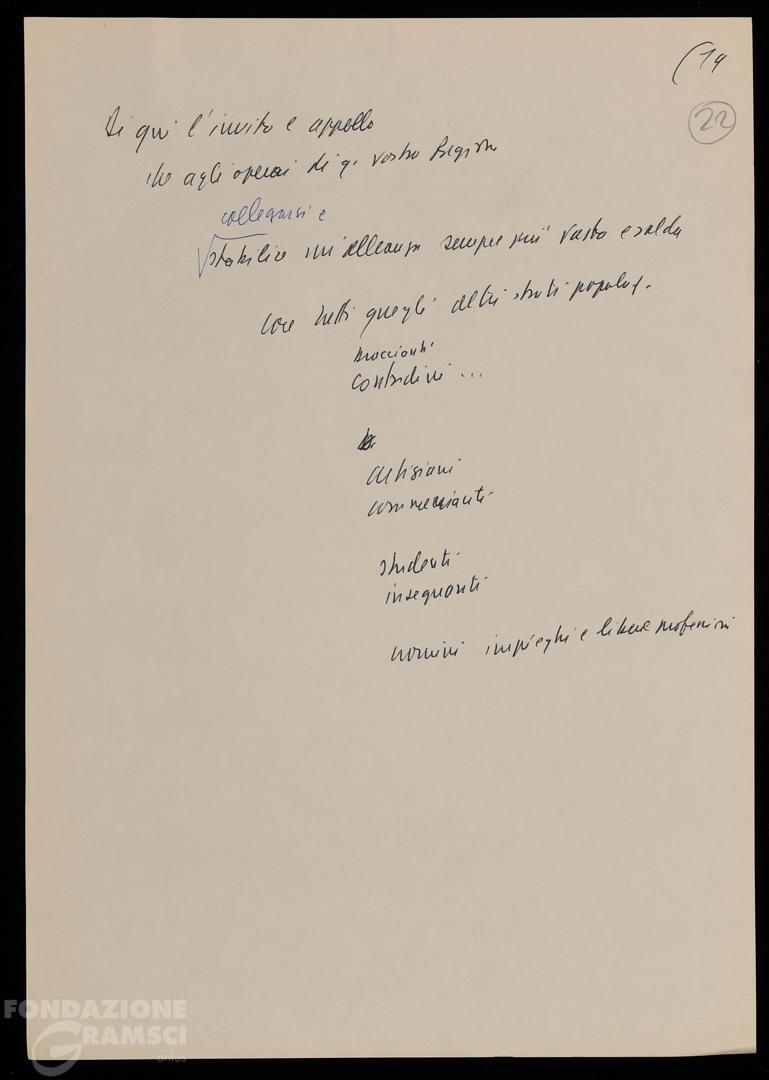 (19
22
Di qui l'invito e appello
che agli operai di q. vostra Regione
collegarsi e
stabilire un'alleanza sempre più vasta e salda
con tutti quegli altri strati popol.
braccianti
contadini ...
artigiani
commercianti
studenti
insegnanti
uomini impieghi e libere professioni
FONDAZIONE
GRAMSCI
onlus